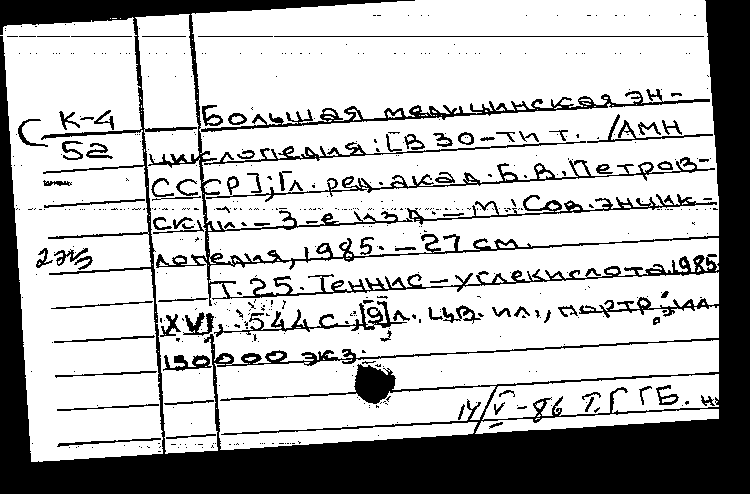 К-4
52
Большая медицинская эн-
циклопедия: [В 30-ти т. /АМН
СССР]; Гл. ред. акад. Б. В. Петров-
ский. – 3-е изд. – М.: Сов. энцик-
2 экз
лопедия, 1985. – 27 см.
Т. 25. Теннис – углекислота. 1985
XVI, 544 с., [9] л. цв. ил., портр.; ил.
150000 экз.
14/V-86 Т. Г. ГБ.